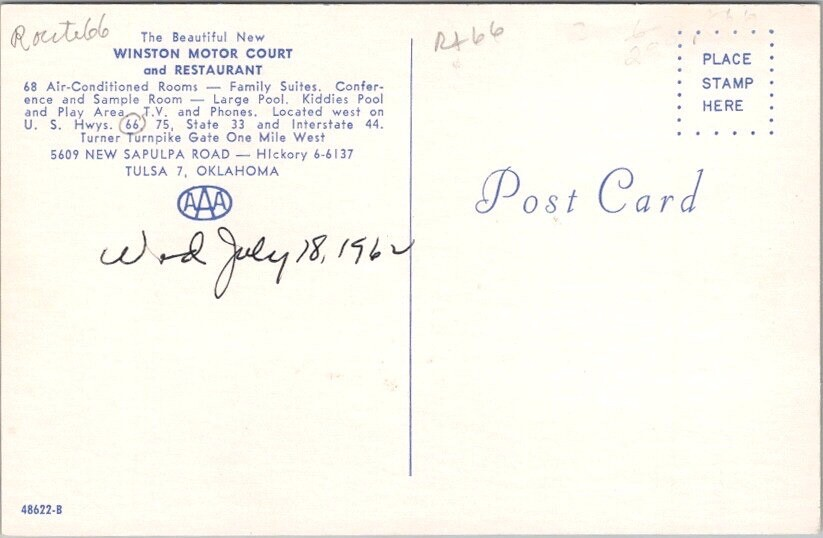 Route 66
The Beautiful New
WINSTON MOTOR COURT
and RESTAURANT
68 Air-Conditioned Rooms — Family Suites. Confer-
ence and Sample Room — Large Pool. Kiddies Pool
and Play Area. T.V. and Phones. Located west on
U. S. Hwys. 66, 75, State 33 and Interstate 44.
Turner Turnpike Gate One Mile West
5609 NEW SAPULPA ROAD — HIckory 6-6137
TULSA 7, OKLAHOMA
AAA
Wed July 18, 1962
48622-B
Rt 66
PLACE
STAMP
HERE
Post Card